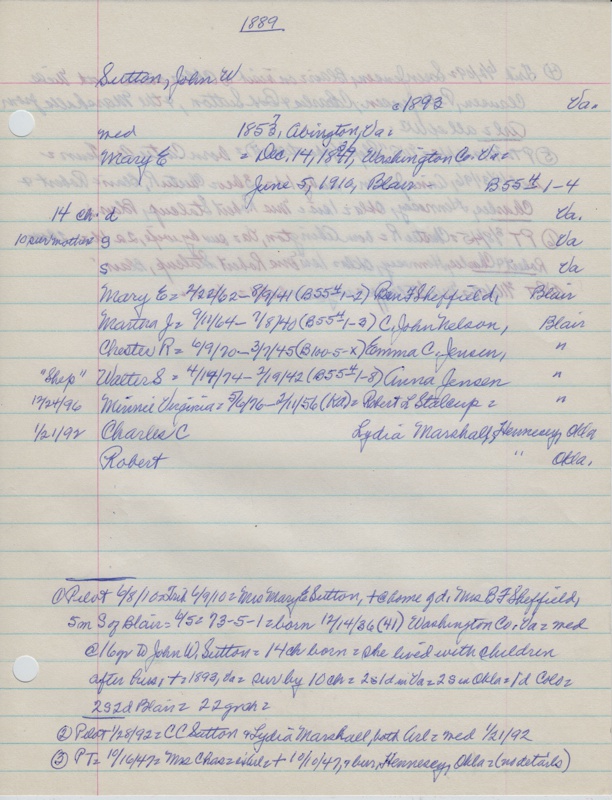 1889
Sutton, John W
c1893 Va.
med 1853, Abington, Va =
Mary E = Dec. 14, 1841, Washington Co. Va =
June 5, 1910, Blair B55# 1-4
14 ch: d Va.
10 surv mother: 9 Va
5 Va
Mary E = 2/22/62 - 8/9/41 (B55#1-2) Ben F Sheffield, Blair
Martha J = 9/11/64 - 7/8/40 (B55#1-3) C, John Nelson, Blair
Chester R = 6/9/70 - 3/7/45 (B100-5-x) Emma C. Jensen, "
"Shep" Walter S = 4/14/74 - 2/19/42 (B55#1-8) Anna Jensen "
12/24/96 Minnie Virginia = 5/6/76 - 2/11/56 (Ka) = Robert L Stalcup = "
1/21/92 Charles C Lydia Marshall, Hennesey, Okla
Robert " Okla.
① Pilot 6/8/10 = Trib 6/9/10 = Mrs Mary E Sutton, + @ home of d, Mrs B F Sheffield,
5 m S of Blair = 6/5 = 73-5-1 = born 12/14/36 (41) Washington Co. Va = med
@ 16 yr to John W. Sutton = 14 ch born = she lived with children
after hus, + = 1893, Va = surv by 10 ch = 2s 1d in Va = 2s in Okla = 1d Colo =
2s 2d Blair = 22 grch =
② Pilot 1/28/92 = CC Sutton & Lydia Marshall, both Arl = med 1/21/92
③ PT = 10/16/47 = Mrs Chas = Arl = + 10/10/47, & bur, Hennesey, Okla = (no details)